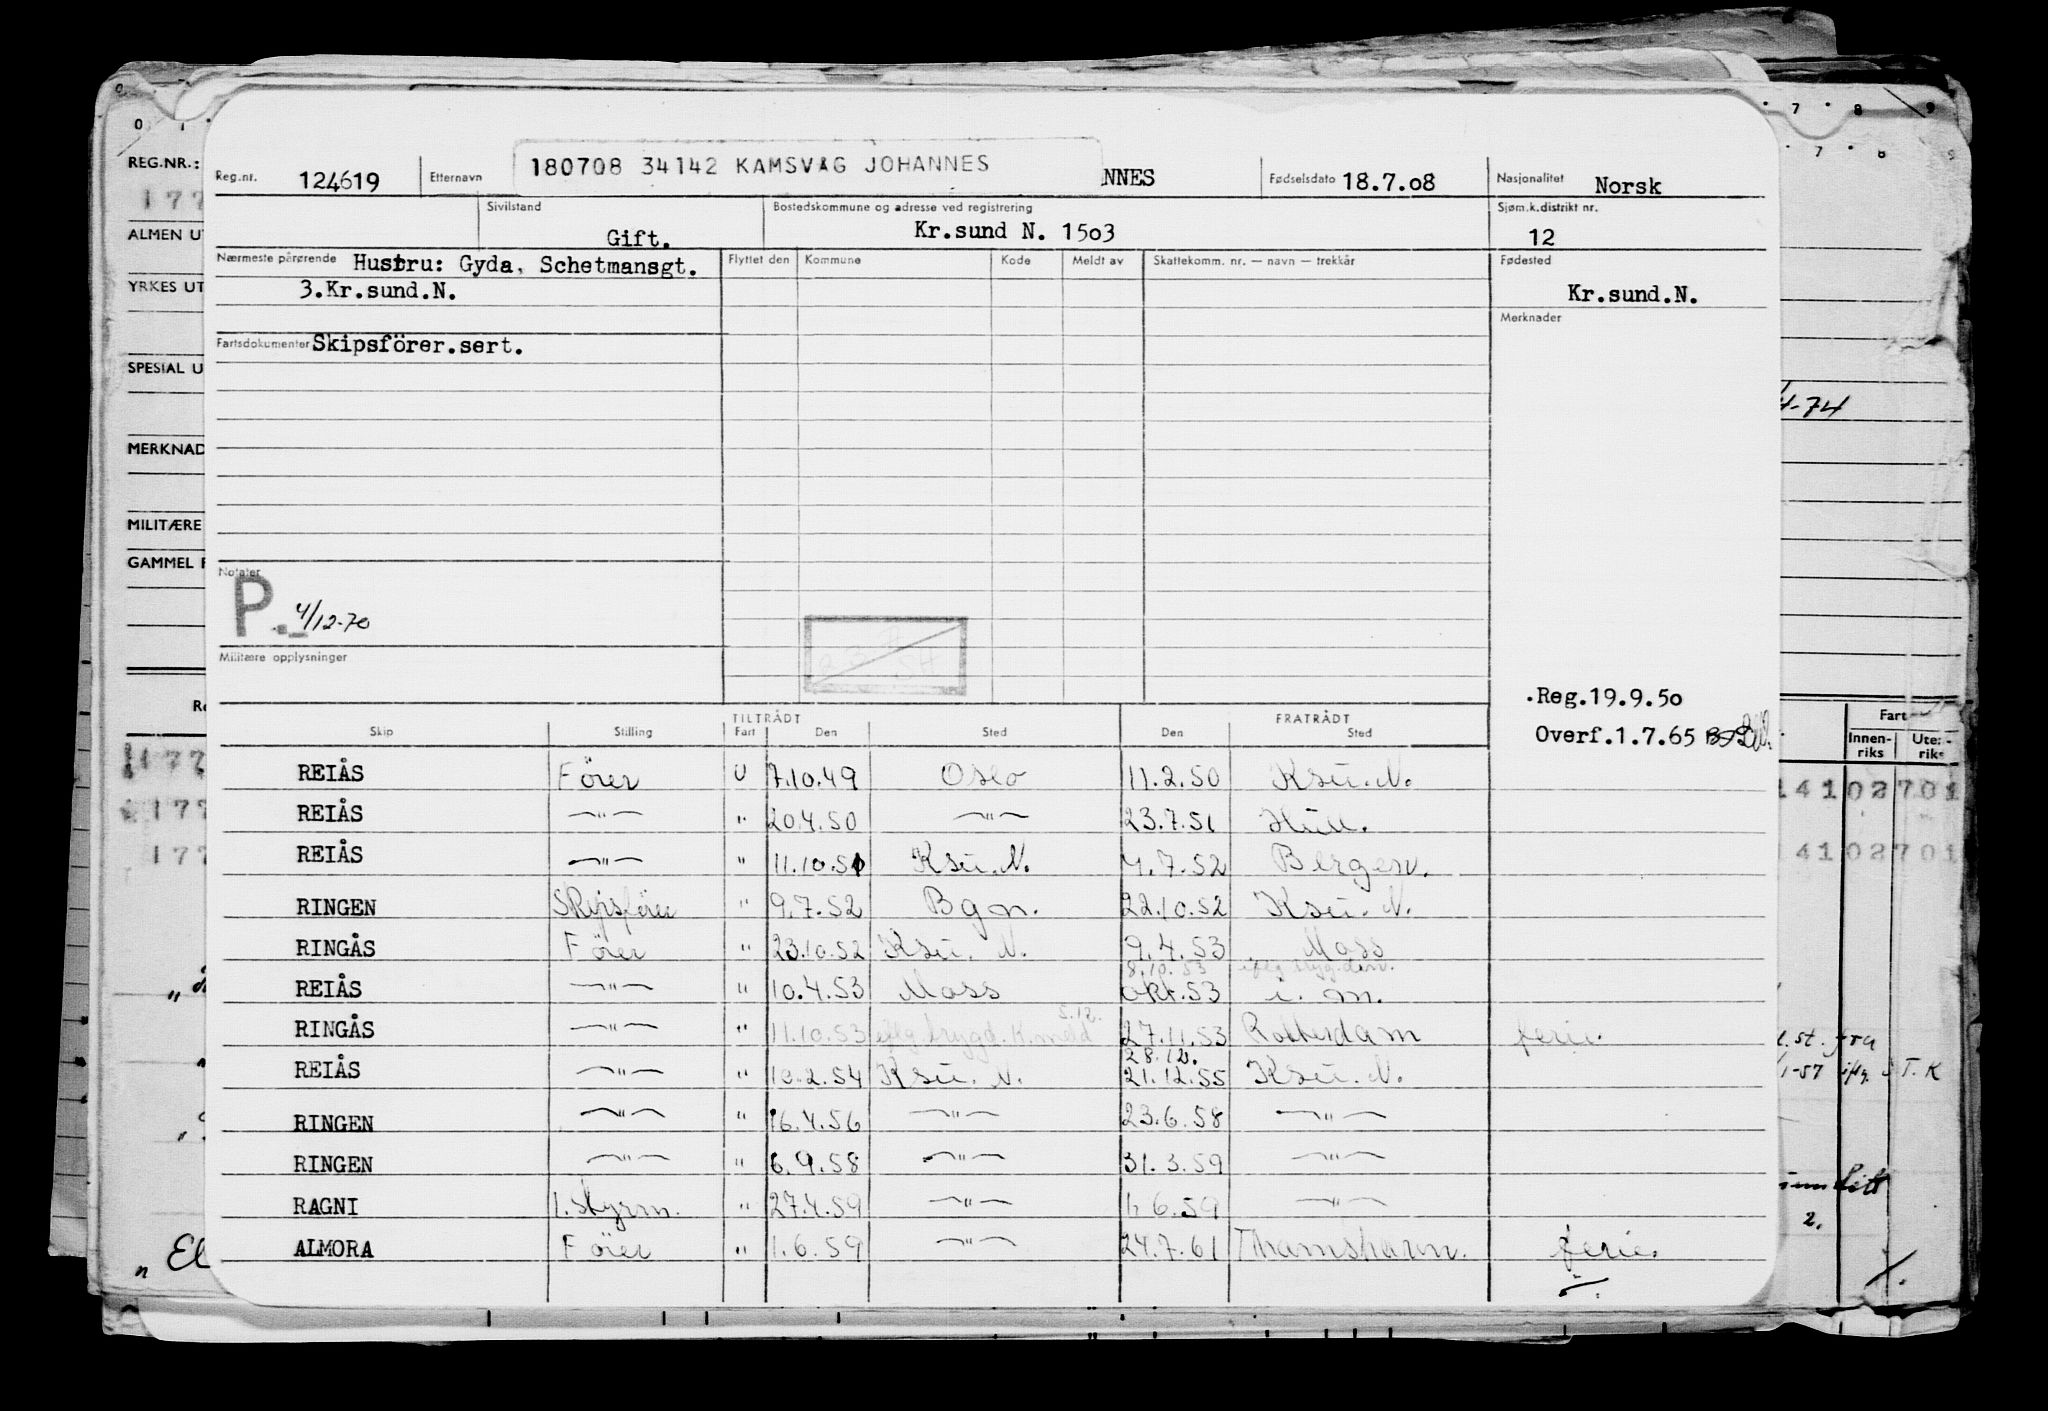 REG.NR.:
177
ALMEN UT
YRKES UT
SPESIAL U
MERKNAD
MILITÆRE
GAMMEL F
Reg.nr. 124619 Etternavn 180708 34142 KAMSVÅG JOHANNES NNES Fødselsdato 18.7.08 Nasjonalitet Norsk
Sivilstand Gift. Bostedskommune og adresse ved registrering Kr.sund N. 1503 Sjøm.k.distrikt nr. 12
Nærmeste pårørende Hustru: Gyda, Schetmansgt. Flyttet den Kommune Kode Meldt av Skattekomm. nr. — navn — trekkår Fødested
3.Kr.sund.N. Kr.sund.N.
Merknader
Fartsdokumenter Skipsförer.sert.
4-74
Notater
P. 4/12-70
Militære opplysninger
.Reg.19.9.50
Overf.1.7.65
TILTRÅDT FRATRÅDT
Skip Stilling Fart Den Sted Den Sted
Fart
Innen-riks Uten-riks
REIÅS Förer U 7.10.49 Oslo 11.2.50 Ksu.N.
REIÅS —"— " 20.4.50 —"— 23.7.51 Hull.
REIÅS —"— " 11.10.51 Ksu.N. 4.7.52 Bergen.
RINGEN Skipsförer " 9.7.52 Bgn. 22.10.52 Ksu.N.
RINGÅS Förer " 23.10.52 Ksu.N. 9.4.53 Moss
8.10.53
REIÅS —"— " 10.4.53 Moss okt.53 i. m.
5.12.
RINGÅS —"— " 11.10.53 iflg. trygd.k.meld 27.11.53 Rotterdam ferie.
28.12.
REIÅS —"— " 10.2.54 Ksu.N. 21.12.55 Ksu.N.
RINGEN —"— " 16.4.56 —"— 23.6.58 —"—
RINGEN —"— " 6.9.58 —"— 31.3.59 —"—
RAGNI 1.styrm. " 27.4.59 —"— 1.6.59 —"—
ALMORA Förer " 1.6.59 —"— 24.7.61 Thamshavn. ferie.
14102701
14102701
l.st. fra
1-57 iflg. S T.K
2.